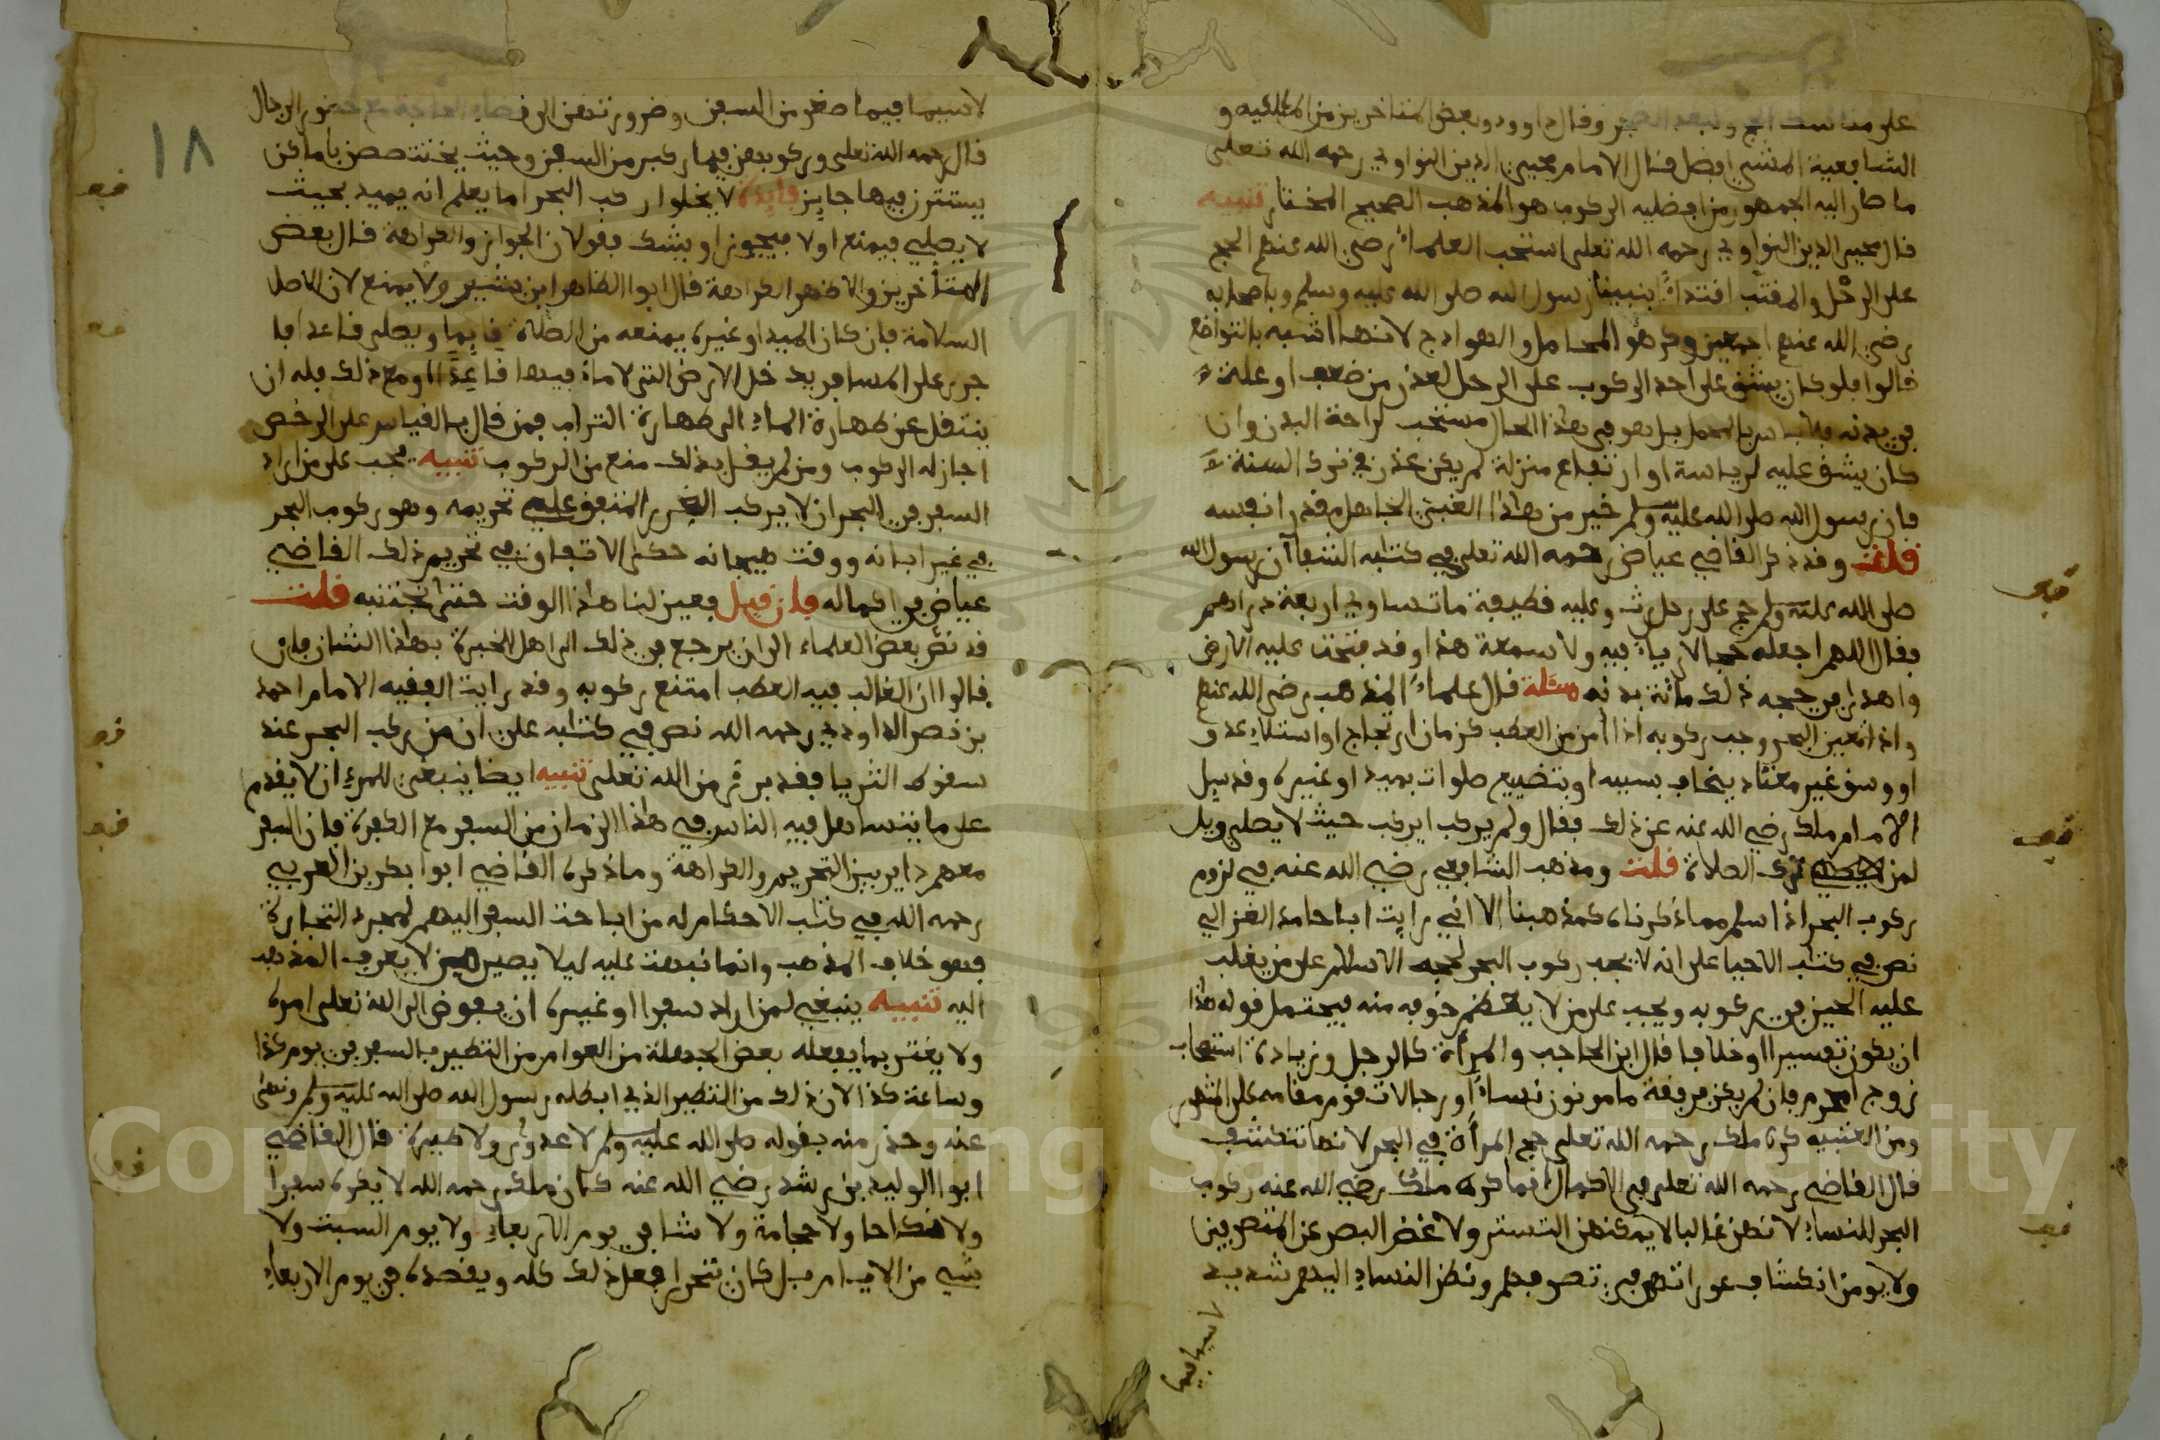 على مناسك الحج ولبعد الصبر وقال داوود وبعض المتاخرين من المالكيه و
الشافعية المشي افضل قال الامام محيي الدين النواوي رحمه الله تعلى
ما صار اليه الجمهور من افضليه الركوب هو المذهب الصحيح المختار تنبيه
قال محيي الدين النواوي رحمه الله تعلى استحب العلماء رضي الله عنهم الحج
على الرحل والمقتب اقتداء بنبينا رسول الله صلى الله عليه وسلم وباصحابه
رضي الله عنهم اجمعين وكرهوا المحامل والهوادج لانها اشبه بالتواضع
قالوا فلو كان يشق على احد الركوب على الرحل لعذر من ضعف او علة
في بدنه فلا باس بالمحمل بل هو في هذا الحال مستحب لراحة البدن وان
كان يشق عليه لرياسة او ارتفاع منزلة لم يكن عذر في ترك السنة
فان رسول الله صلى الله عليه وسلم خير من هذا الغبي الجاهل بقدر نفسه
قلت وقد ذكر القاضي عياض رحمه الله تعلى في كتابه الشفا ان رسول الله
صلى الله عليه وسلم حج على رحل رث وعليه قطيفة ما تساوي اربعة دراهم
فقال اللهم اجعله حجا لا رياء فيه ولا سمعة هذا وقد فتحت عليه الارض
واهدى في حجه ذلك مائة بدنه مسئلة قال علماء المذهب رضي الله عنهم
واذا تعين البحر وجب ركوبه اذا امن من العطب كزمان ارتجاج او استلاء عدو
او وسق غير معتاد يخاف بسببه او بتضييع صلوات بميد او غيره وقد سيل
الامام ملك رضي الله عنه عن ذلك فقال ولم يركب ايركب حيث لا يصلي ويل
لمن ترك الصلاة قلت ومذهب الشافعي رضي الله عنه في لزوم
ركوب البحر اذ اسلم مما ذكرناه كمذهبنا الا اني رايت ابا حامد الغزالي
نص في كتاب الاحيا على انه لا يجب ركوب البحر لحجة الاسلام على من يغلب
عليه الحين في ركوبه ويجب على من لا يعظم خوفه منه فيحتمل قوله هذا
ان يكون تفسيرا او خلافا قال ابن الحاجب والمراة كالرجل وزيادة استصحاب
زوج او محرم فان لم يكن فرفقة مامونون نساء او رجالات تقوم مقامه على المشهور
ومن العتبيه كره ملك رحمه الله تعلى حج المراة في البحر لانها تنكشف
قال القاضي رحمه الله تعلى في الاكمال انما كره ملك رضي الله عنه ركوب
البحر للنساء لانهن غالبا لا يمكنهن التستر ولا غض البصر عن المتصرفين
ولا يومن انكشاف عوراتهم في تصرفهم ونظر النساء اليهم شديد
لا سيما فيما
١٨
لا سيما فيما صغر من السفن وضرورتهن الى قضاء الحاجة مع حضور الرجال
قال رحمه الله تعلى وركوبهن فيما كبر من السفن وحيث يختصصن باماكن
يستترن فيها جايز فايدة لا يخلوا راكب البحر اما يعلم انه يميد بحيث
لا يصلي فيمنع اولا فيجوز او يشك فقولان الجواز والكراهة قال بعض
المتأخرين والاظهر الكراهة قال ابوا الطاهر ابن بشير ولا يمنع لان الاصل
السلامة فان كان الميد او غيره يمنعه من الصلاة قايما ويصلي قاعدا فا
جرى على المسافر يدخل الارض التي لا ماء فيها قاعدا ومع ذلك فله ان
ينتقل عن طهارة الماء الى طهارة التراب فمن قال بالقياس على الرخص
اجاز له الركوب ومن لم يقل بذلك منع من الركوب تنبيه يجب على من اراد
السفر في البحر ان لا يركب الغرر المتفق عليه تحريمه وهو ركوب البحر
في غير ابانه ووقت هيجانه حكى الاتفاق في تحريم ذلك القاضي
عياض في اكماله فان قيل فعين لنا هذا الوقت حتى نجتنبه قلت
قد نص بعض العلماء الى ان يرجع في ذلك الى اهل الخبرة بهذا الشان فان
قالوا ان الغالب فيه العطب امتنع ركوبه وقد رايت الفقيه الامام احمد
بن نصر الداودي رحمه الله نص في كتابه على ان من ركب البحر عند
سقوط الثريا فقد برئ من الله تعلى تنبيه ايضا ينبغي للمرء ان لا يقدم
على ما يتساهل فيه الناس في هذا الزمان من السفر مع الكفرة فان السفر
معهم داير بين التحريم والكراهة وما ذكره القاضي ابوا بكر بن العربي
رحمه الله في كتاب الاحكام له من اباحت السفر اليهم لمجرد التجارة
فهو خلاف المذهب وانما نبهت عليه ليلا يصير من لا يعرف المذهب
اليه تنبيه ينبغي لمن اراد سفرا او غيره ان يفوض الى الله تعلى امره
ولا يغتر بما يفعله بعض الجهلة من العوام من التطير بالسفر في يوم كذا
وساعة كذا لان ذلك من التطير الذي ابطله رسول الله صلى الله عليه وسلم ونهى
عنه وحذر منه بقوله صلى الله عليه وسلم لا عدوى ولا طيرة قال القاضي
ابوا الوليد بن رشد رضي الله عنه كان ملك رحمه الله لا يكره سفرا
ولا نكاحا ولا حجامة ولا شا في يوم الاربعاء ولا يوم السبت ولا
شي من الايام بل كان يتحرا فعل ذلك كله ويقصده في يوم الاربعاء
Copyright © King Saud University